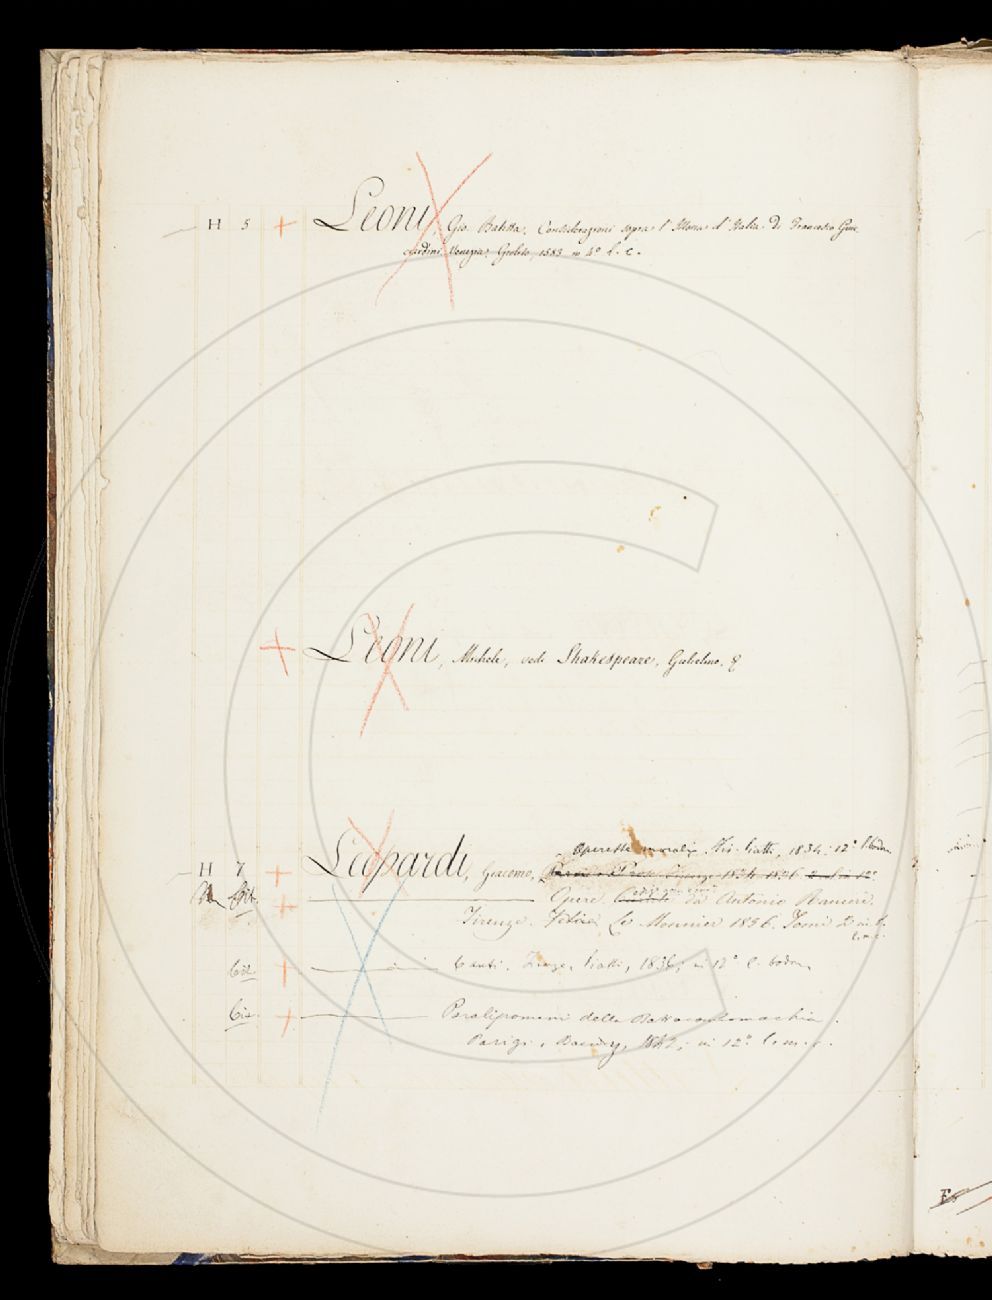 H 5 + Leoni, Gio. Batista, Considerazioni sopra l'Istoria d'Italia di Francesco Guic
ciardini Venezia, Giolito, 1583 in 4° l. c.
+ Leoni, Michele, vedi Shakespeare, Guglielmo. &
Operette morali. Piatti, 1834. 12°
H 7 + Leopardi, Giacomo, Versi e Prose. Firenze 1824 1826 12°
+ Opere. da Antonio Ranieri.
Firenze. Felice Le Monnier 1856. Tomi 2 in
l. m. c.
Bis. + Canti. Firenze, Piatti, 1836; in 12°
Bis. + Paralipomeni della Batracomiomachia.
Parigi, Baudry, 1842; in 12° l. m. c.